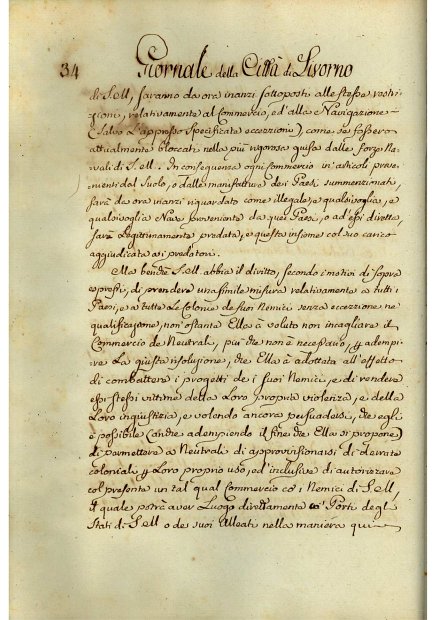 34 Giornale della Città di Livorno
di S. M., saranno da ora inanzi sottoposti alle stesse restri-
zioni, relativamente al Commercio, ed' alla Navigazione
(Salvo L'appresso Specificate eccezzioni), come se fossero
attualmente bloccati nella più rigorosa guisa dalle forze Na-
vali di S. M. In consequenza ogni Commercio in' articoli prove-
nienti dal Suolo, o dalle manifatture dei Paesi summenzionati,
sarà da ora inanzi riguardato come illegale, e qualsivoglia, e
qualsivoglia Nave proveniente da quei Paesi, o ad' essi diretta,
sarà Legittimamente predata, e questa insieme col suo carico
aggiudicata ai predatori.
Ma benche S. M. abbia il diritto, secondo i motivi di sopra
espressi, di prendere una simile misura relativamente a tutti i
Paesi, e a tutte Le Colonie de suoi Nemici senza eccezzione ne
qualificazione, non' ostante Ella à voluto non incagliare il
Commercio de Neutrali, più che non è necessario, p adempi-
re La giusta risoluzione, che Ella à adottata all'effetto
di combattere i progetti de i suoi Nemici, e di rendere
essi stessi vittime della Loro propria violenza, e della
Loro ingiustizia, e volendo ancora persuadersi, che egli
è possibile (anche adempiendo il fine che Ella si propone)
di permettere a Neutrali di approvvisionarsi di derrate
coloniali p Loro proprio uso, ed' inclusive di autorizare
col presente un tal qual Commercio co' i Nemici di S. M.,
il quale potrà aver Luogo direttamente co' Porti degl
Stati di S. M. o dei suoi Alleati nella maniera qui